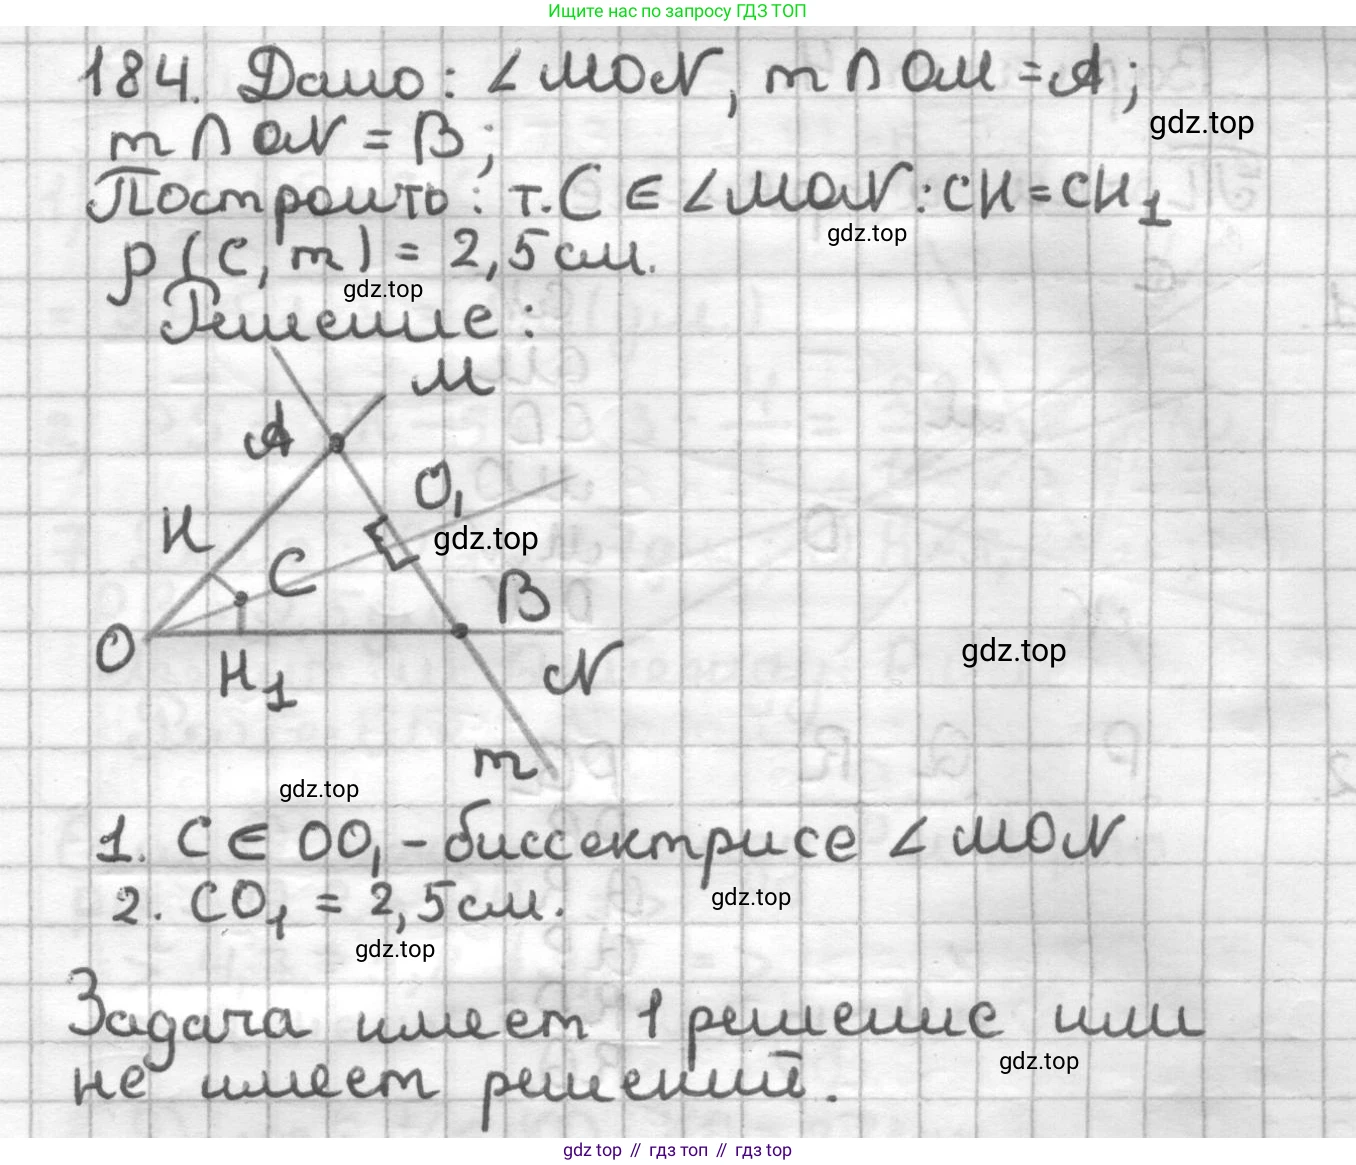 Ищите нас по запросу ГДЗ ТОП
184. Дано: ∠MON, m ∩ OM = A;
gdz.top
m ∩ ON = B;
Построить: т. C ∈ ∠MON: CH = CH₁
gdz.top
ρ(C, m) = 2,5 см.
gdz.top
Решение:
M
A
O₁
H
gdz.top
C
B
O
gdz.top
H₁
N
m
gdz.top
1. C ∈ OO₁ - биссектрисе ∠MON
gdz.top
2. CO₁ = 2,5 см.
gdz.top
Задача имеет 1 решение или
gdz.top
не имеет решений.
gdz.top // гдз топ // гдз top